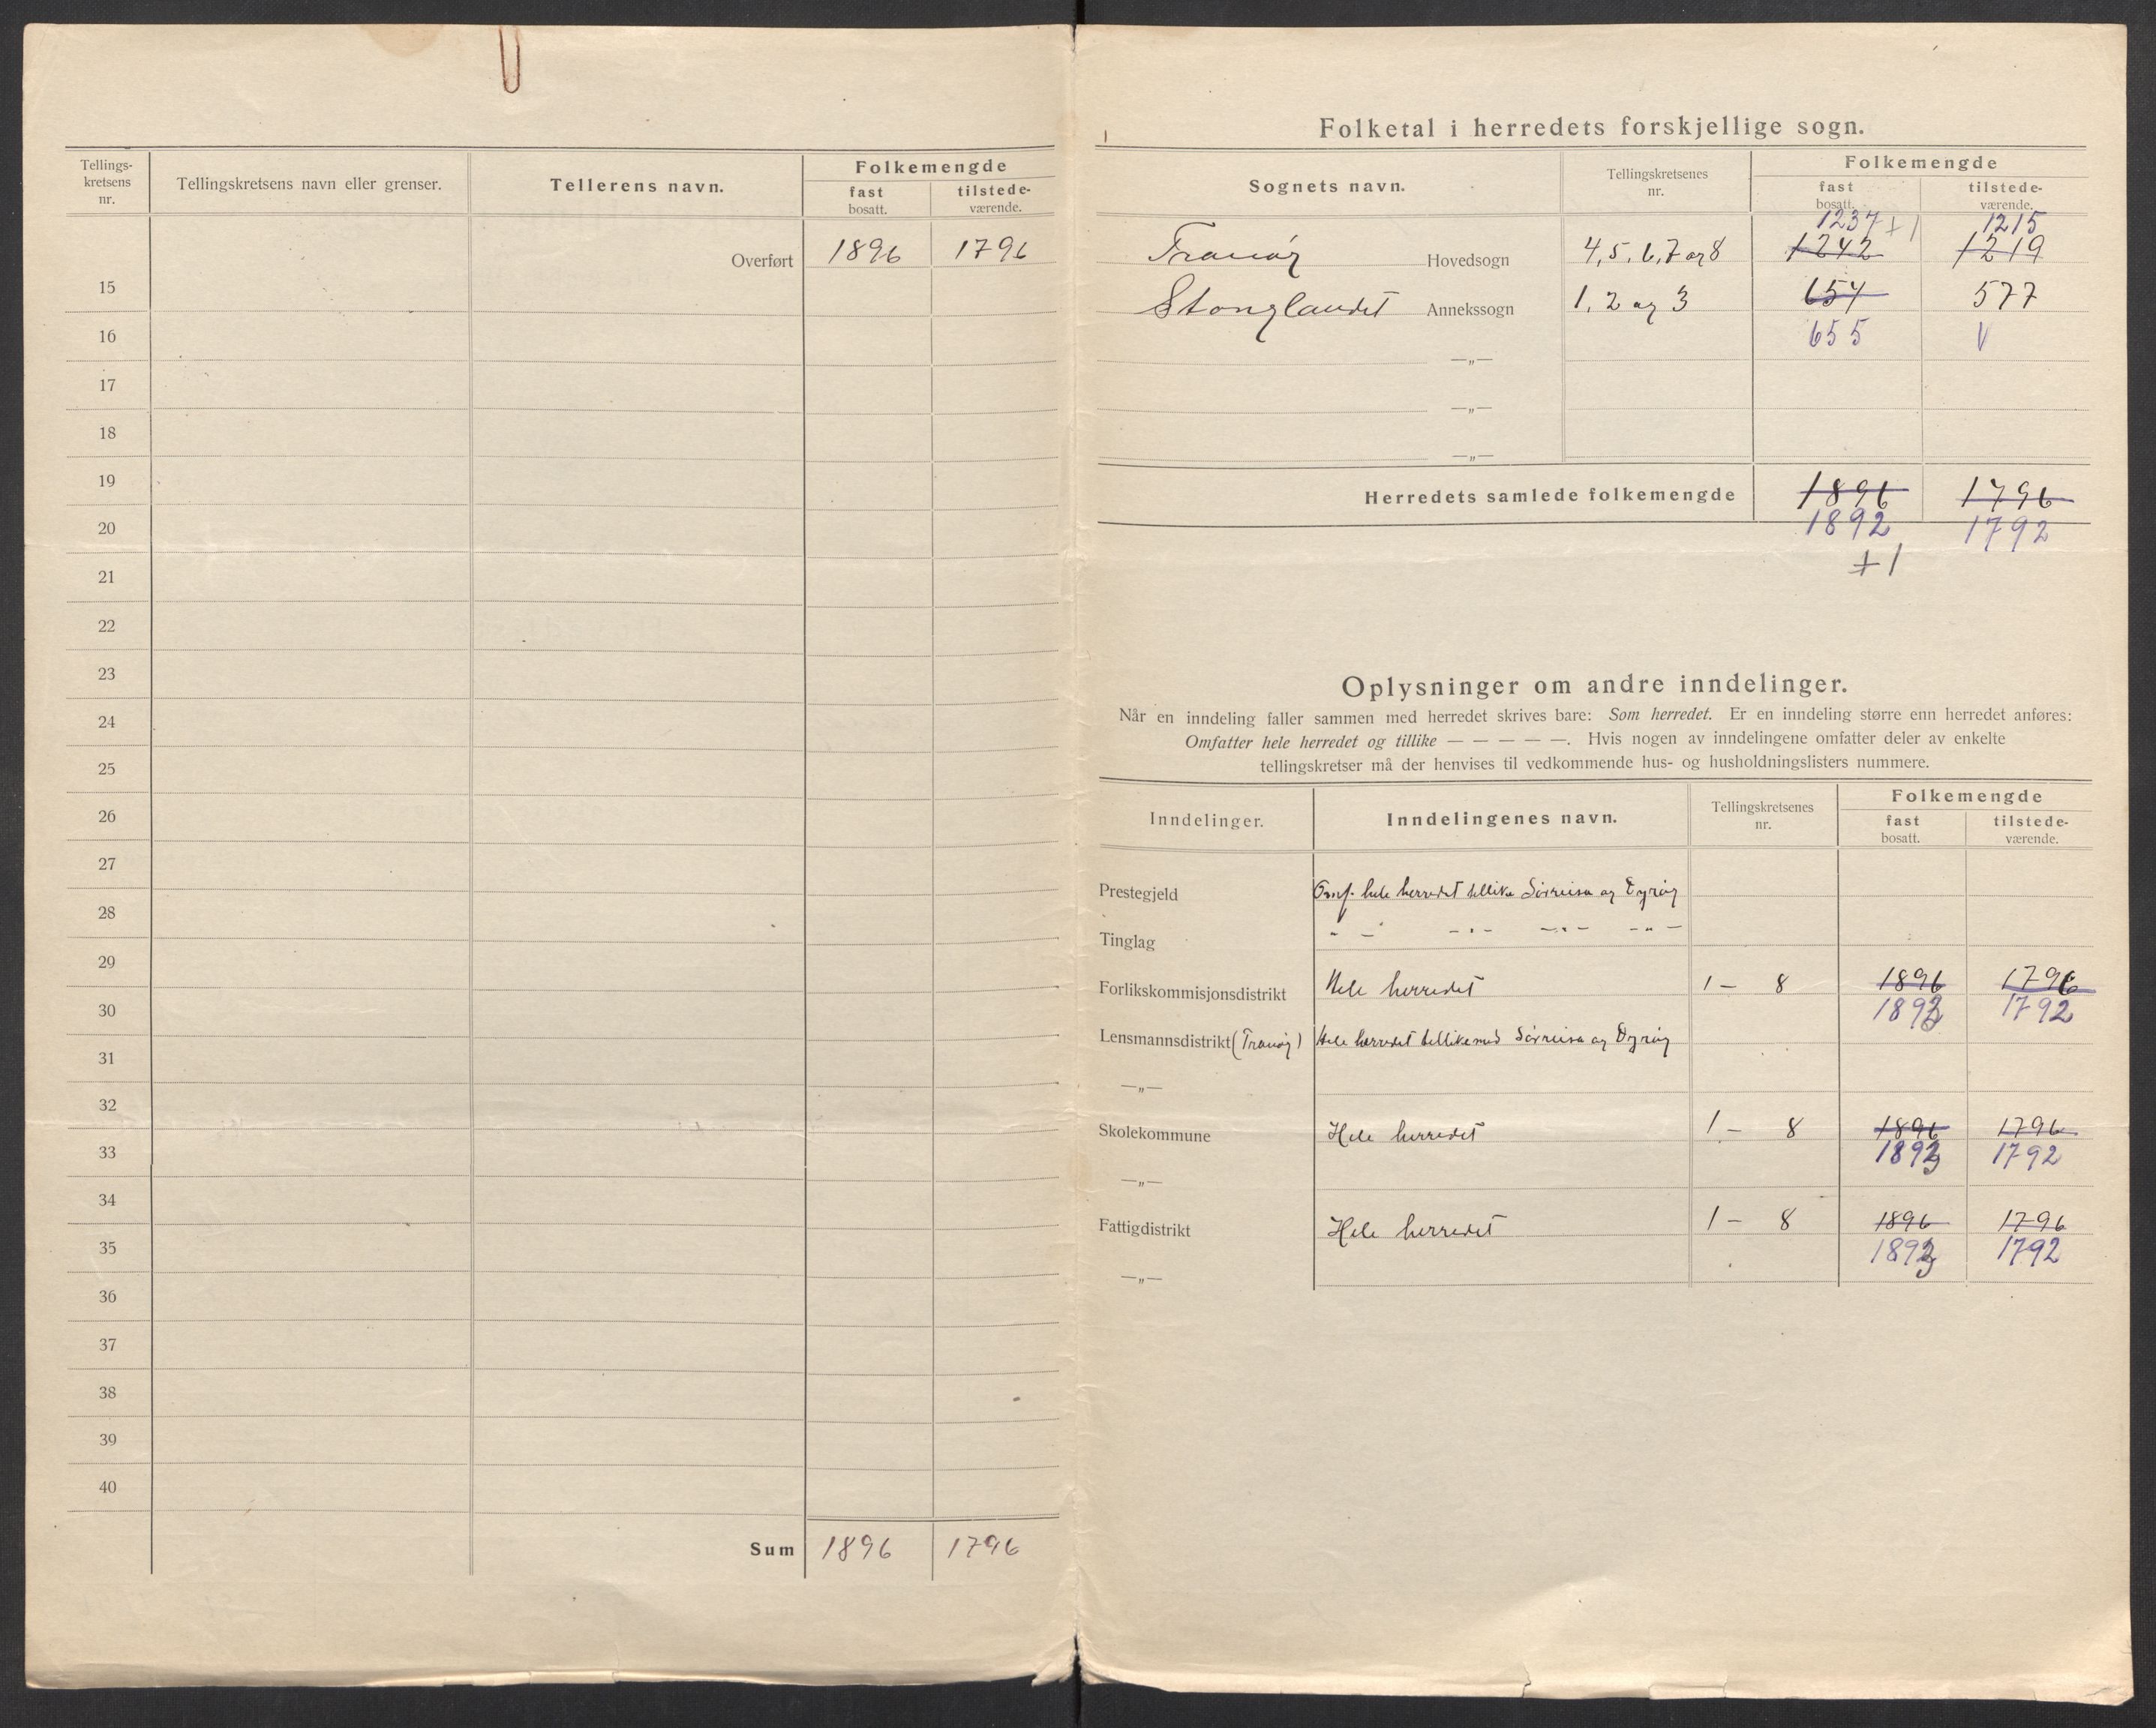 Tellings-
kretsens
nr.
Tellingskretsens navn eller grenser.
Tellerens navn.
Folkemengde
fast
bosatt.
tilstede-
værende.
Overført 1896 1796
15
16
17
18
19
20
21
22
23
24
25
26
27
28
29
30
31
32
33
34
35
36
37
38
39
40
Sum 1896 1796
Folketal i herredets forskjellige sogn.
Sognets navn.
Tellingskretsenes
nr.
Folkemengde
fast
bosatt.
tilstede-
værende.
1237 +1 1215
Tranøy Hovedsogn 4, 5, 6, 7 og 8 1242 1219
Stonglandet Annekssogn 1, 2 og 3 654 577
655 V
—„—
—„—
—„—
Herredets samlede folkemengde 1896 1796
1892 1792
+1
Oplysninger om andre inndelinger.
Når en inndeling faller sammen med herredet skrives bare: Som herredet. Er en inndeling større enn herredet anføres:
Omfatter hele herredet og tillike — — — — —. Hvis nogen av inndelingene omfatter deler av enkelte
tellingskretser må der henvises til vedkommende hus- og husholdningslisters nummere.
Inndelinger.
Inndelingenes navn.
Tellingskretsenes
nr.
Folkemengde
fast
bosatt.
tilstede-
værende.
Prestegjeld Omf. hele herredet tillike Sørreisa og Dyrøy
Tinglag „ — —„— —„— —„—
Forlikskommisjonsdistrikt Hele herredet 1 — 8 1896 1796
1893 1792
Lensmannsdistrikt (Tranøy) Hele herredet tillikemed Sørreisa og Dyrøy
—„—
Skolekommune Hele herredet 1 — 8 1896 1796
1893 1792
—„—
Fattigdistrikt Hele herredet 1 — 8 1896 1796
1893 1792
—„—